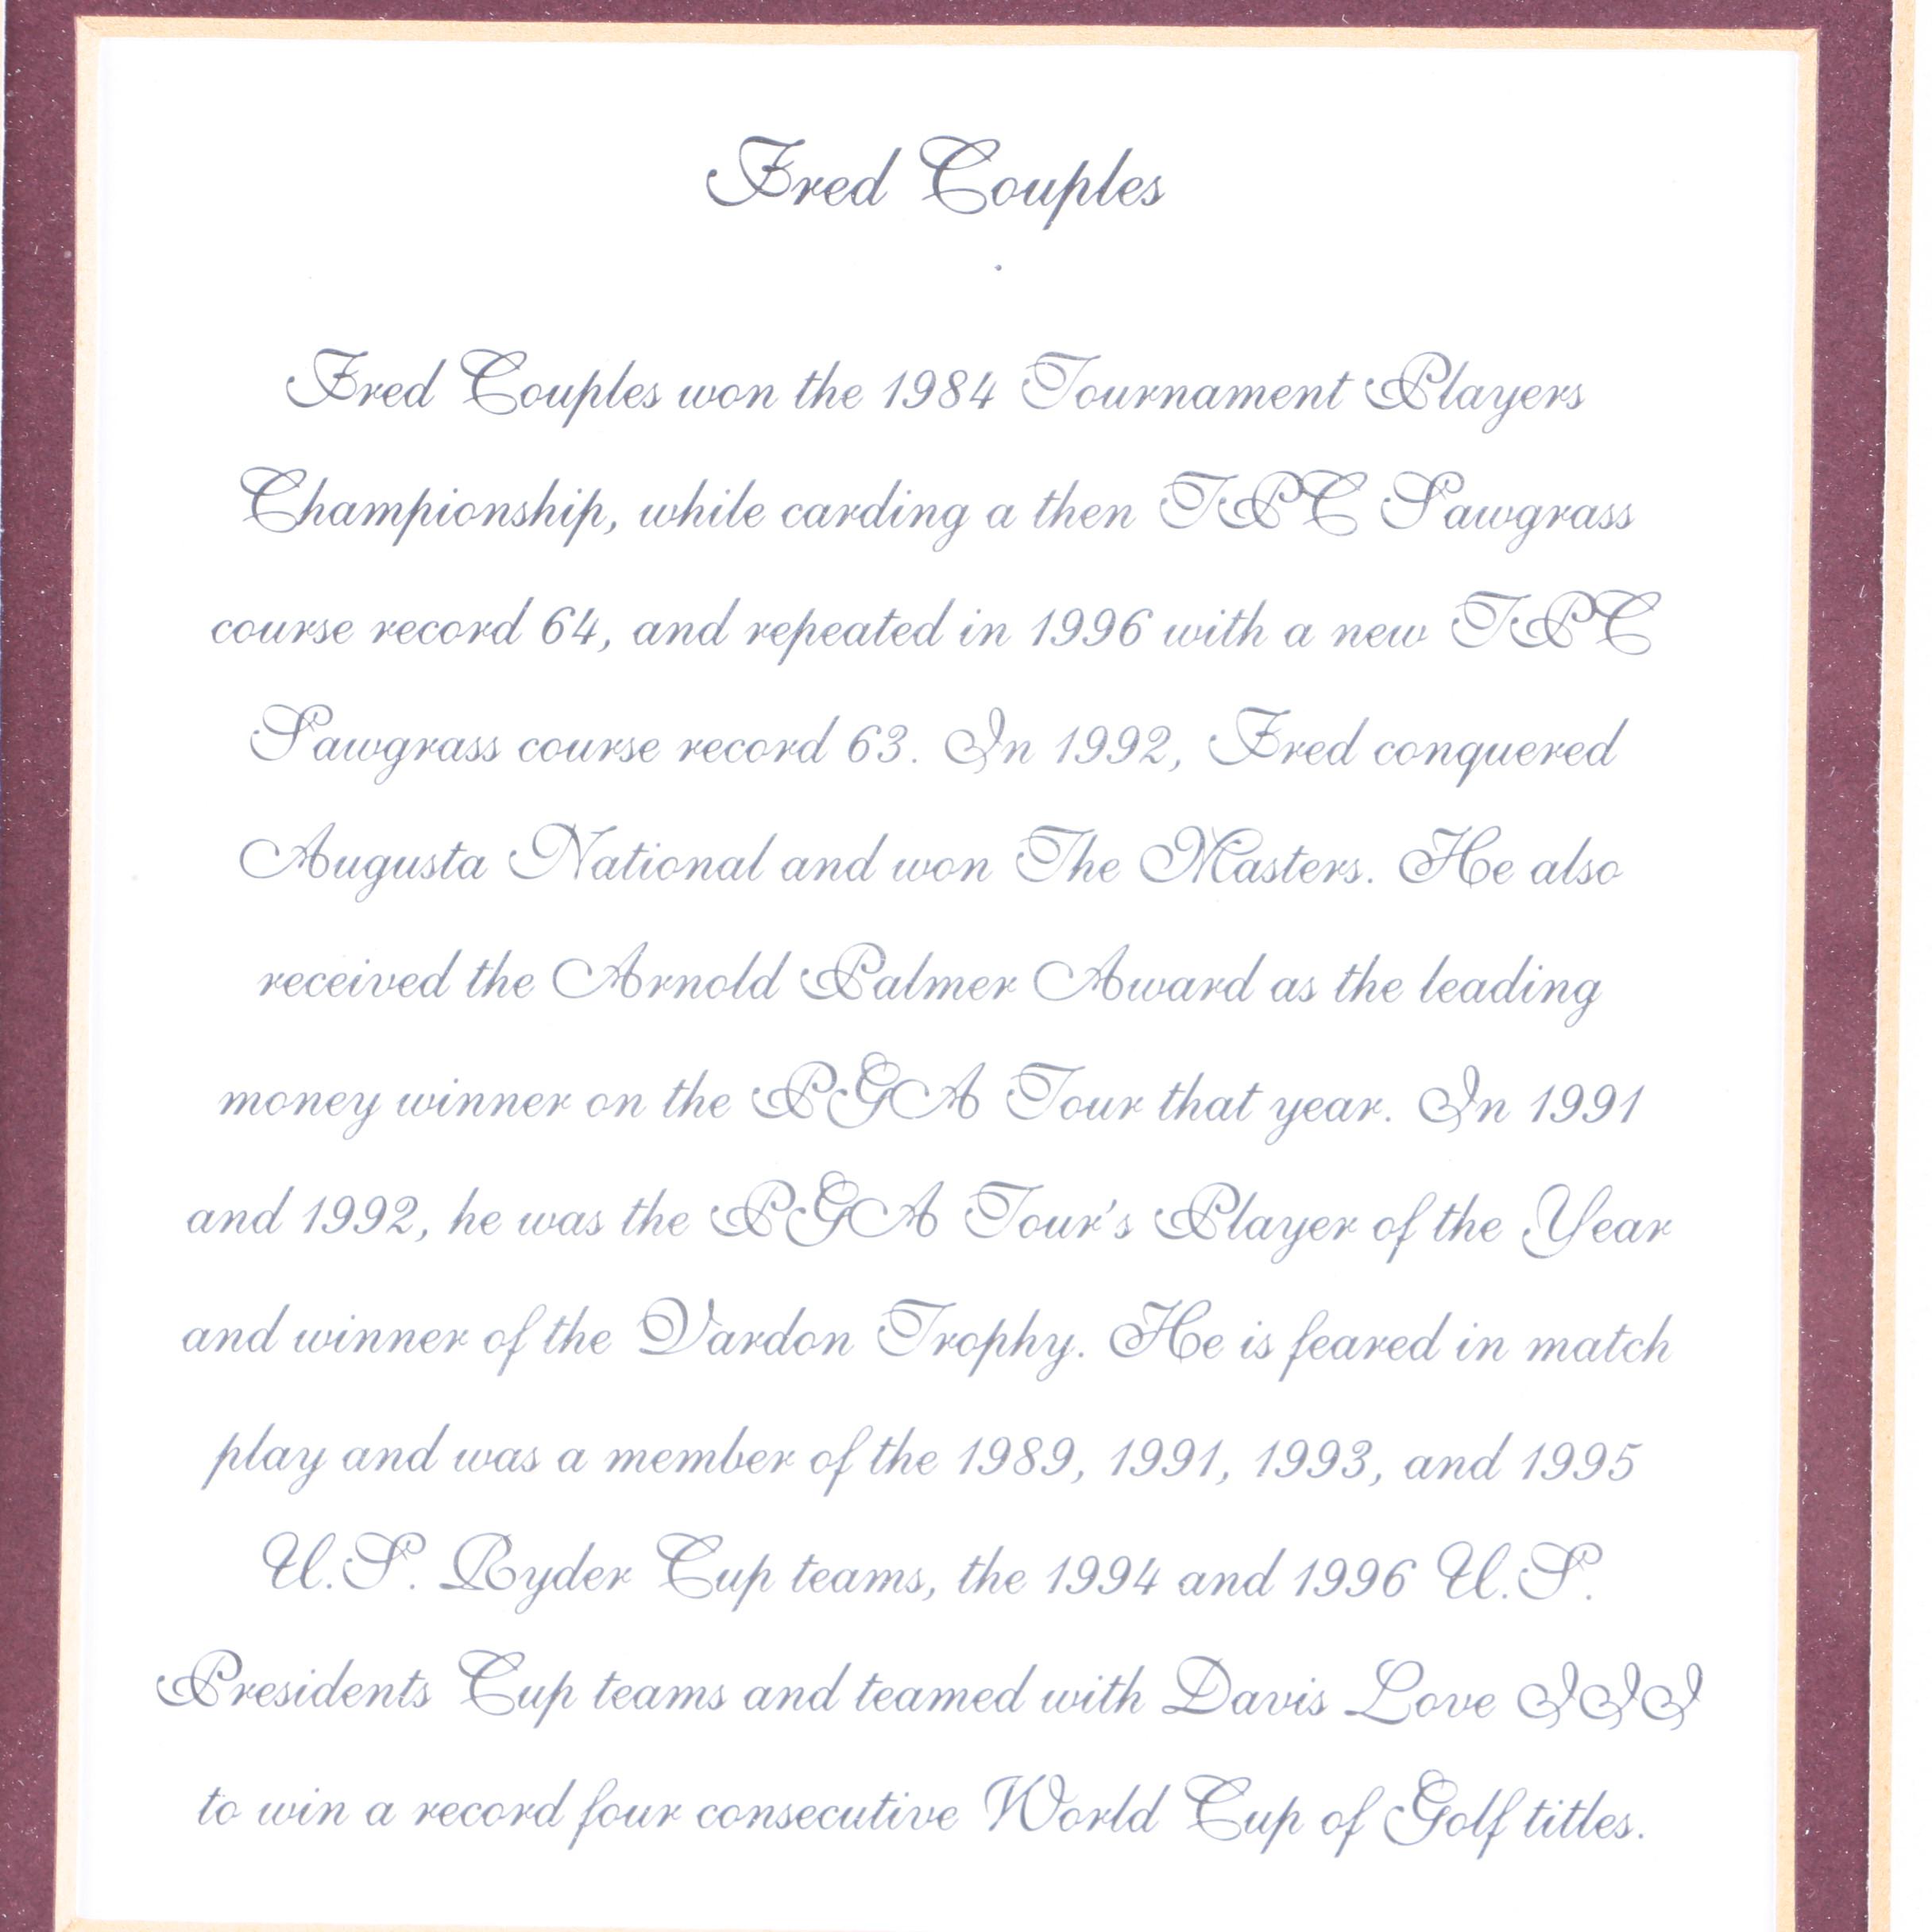 Fred Couples
Fred Couples won the 1984 Tournament Players
Championship, while carding a then TPC Sawgrass
course record 64, and repeated in 1996 with a new TPC
Sawgrass course record 63. In 1992, Fred conquered
Augusta National and won The Masters. He also
received the Arnold Palmer Award as the leading
money winner on the PGA Tour that year. In 1991
and 1992, he was the PGA Tour's Player of the Year
and winner of the Vardon Trophy. He is feared in match
play and was a member of the 1989, 1991, 1993, and 1995
U.S. Ryder Cup teams, the 1994 and 1996 U.S.
Presidents Cup teams and teamed with Davis Love III
to win a record four consecutive World Cup of Golf titles.